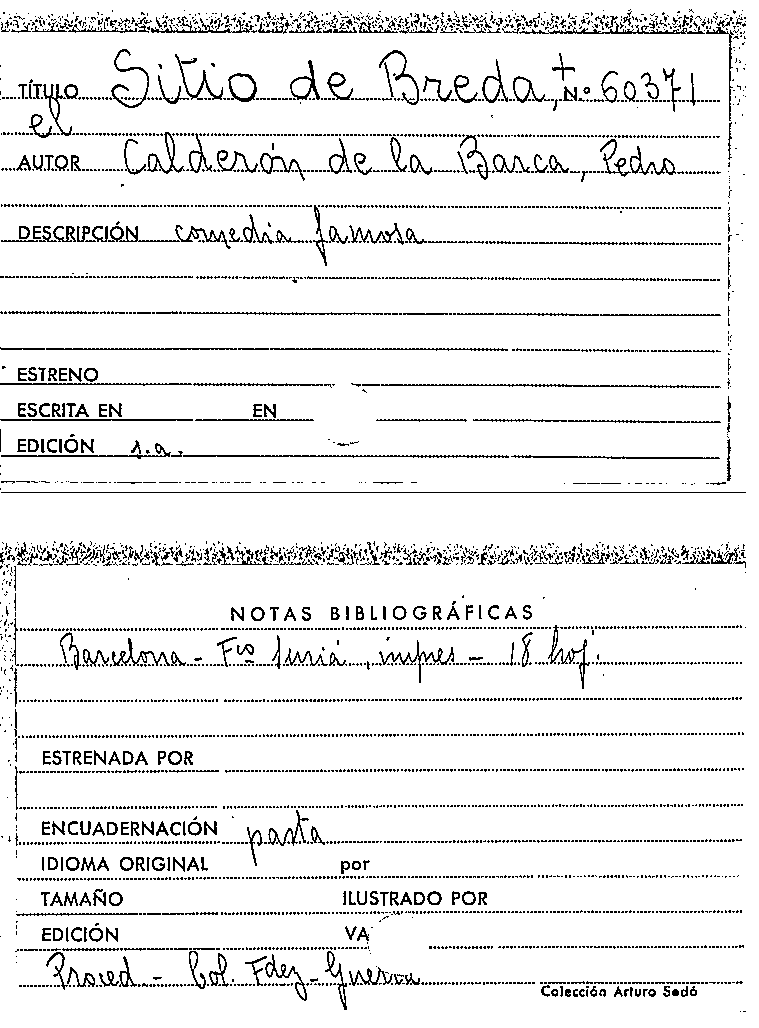 TÍTULO Sitio de Breda, + Nº 60371
el
AUTOR Calderón de la Barca, Pedro
DESCRIPCIÓN comedia famosa
ESTRENO
ESCRITA EN EN
EDICIÓN s.a.
NOTAS BIBLIOGRÁFICAS
Barcelona - Fco Suriá, impres - 18 hoj.
ESTRENADA POR
ENCUADERNACIÓN pasta
IDIOMA ORIGINAL por
TAMAÑO ILUSTRADO POR
EDICIÓN VA
Proced - Col. Fdez-Guerra
Colección Arturo Sedó